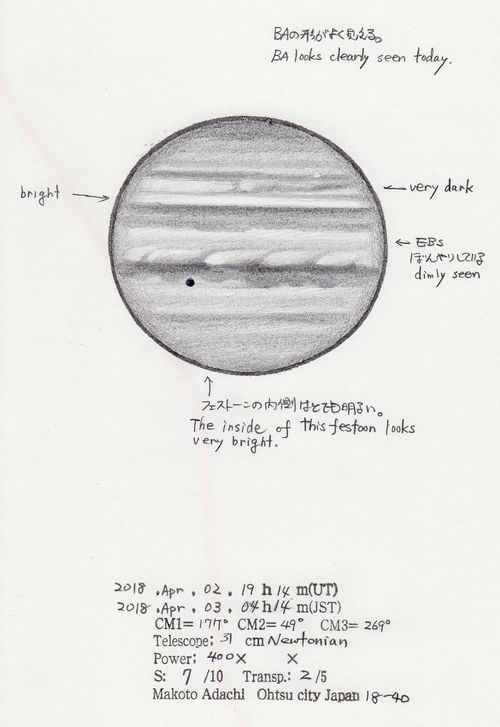 BAの形がよく見える。
BA looks clearly seen today.
bright
very dark
EBs
ぼんやりしている
dimly seen
フェストーンの内側はとても明るい。
The inside of this festoon looks
very bright.
2018 ,Apr , 02 , 19 h 14 m(UT)
2018 ,Apr , 03 , 04 h 14 m(JST)
CM1= 177° CM2= 49° CM3= 269°
Telescope: 31 cm Newtonian
Power: 400× ×
S: 7 /10 Transp.: 2 /5
Makoto Adachi Ohtsu city Japan 18-40